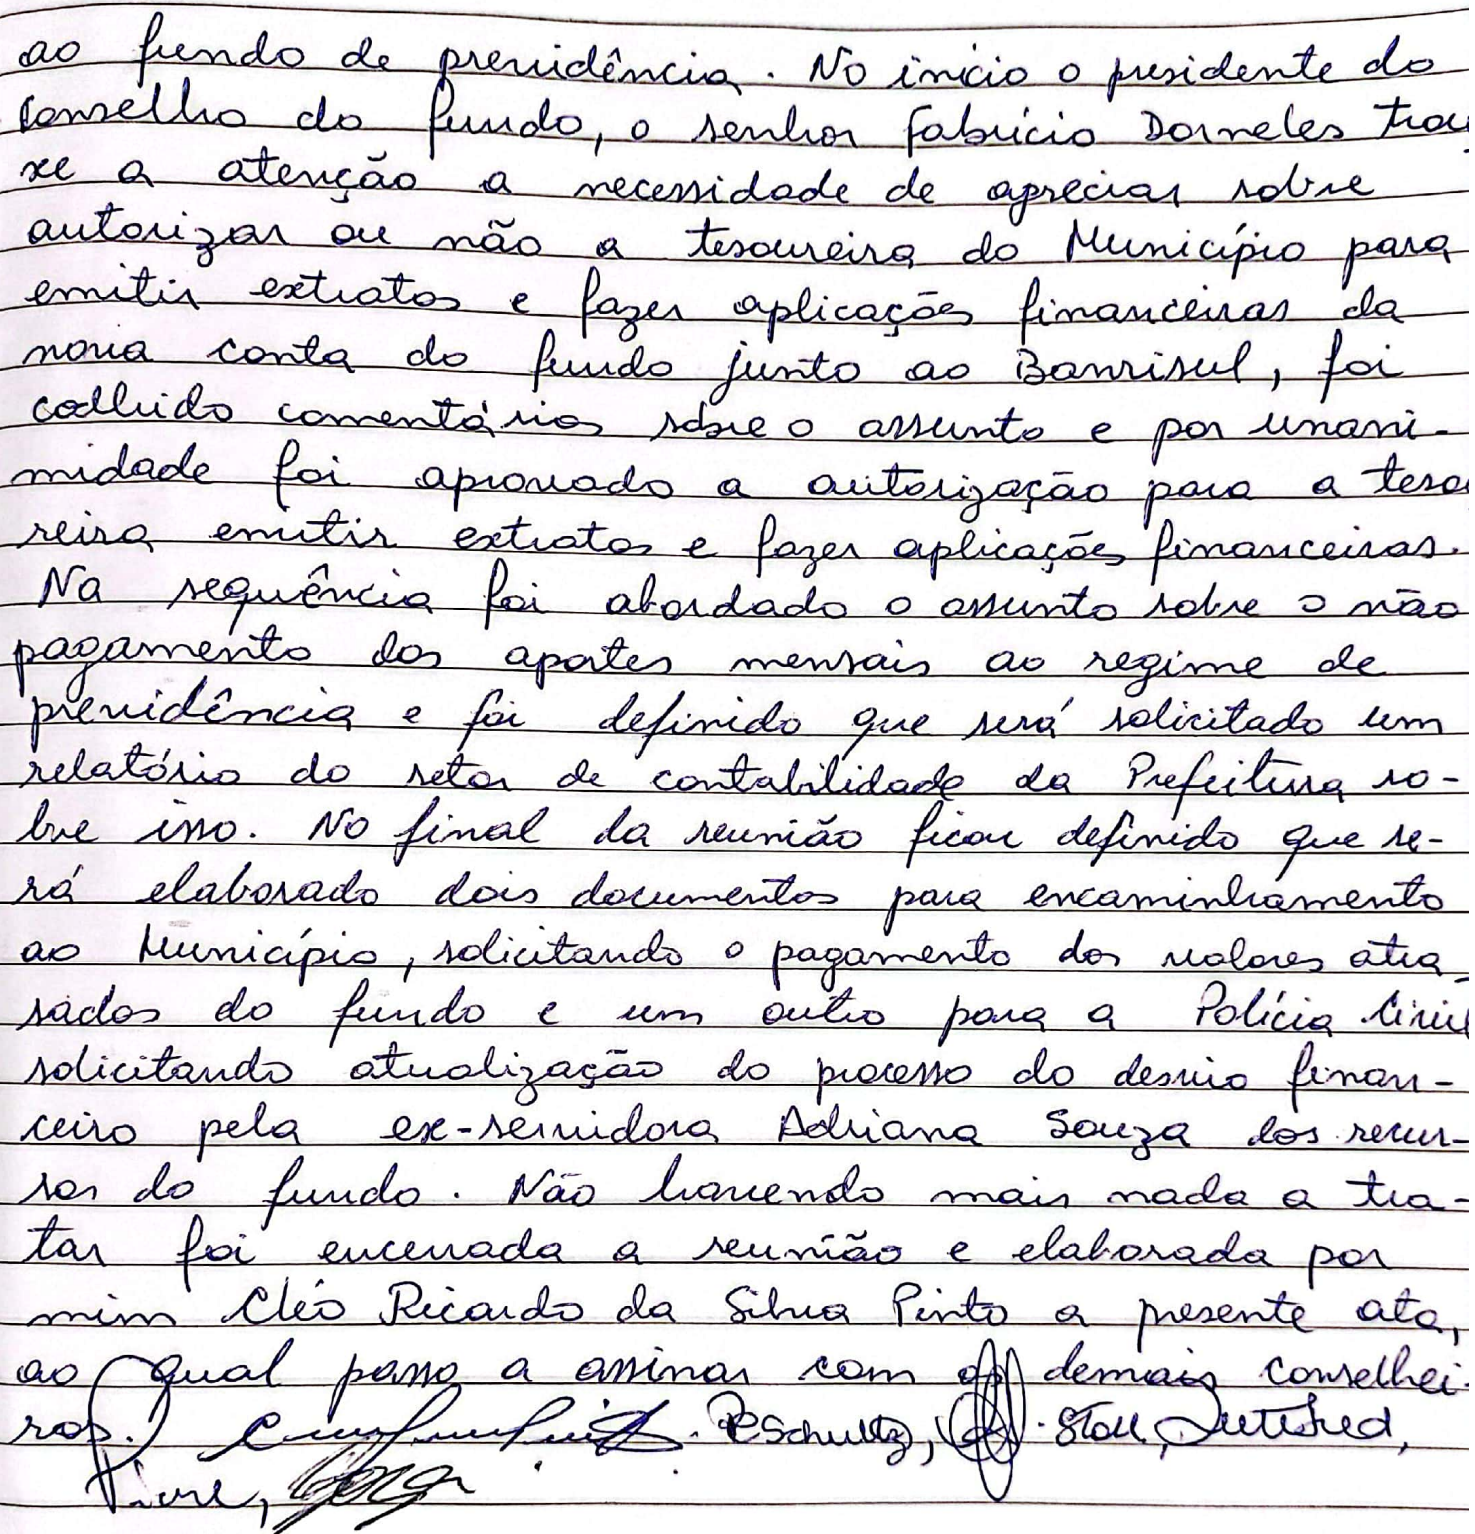 ao fundo de previdência. No início o presidente do
Conselho do fundo, o senhor Fabrício Dorneles trou
xe a atenção a necessidade de apreciar sobre
autorizar ou não a tesoureira do Município para
emitir extratos e fazer aplicações financeiras da
nova conta do fundo junto ao Banrisul, foi
colhido comentários sobre o assunto e por unani-
midade foi aprovado a autorização para a tesou
reira emitir extratos e fazer aplicações financeiras.
Na sequência foi abordado o assunto sobre o não
pagamento dos aportes mensais ao regime de
previdência e foi definido que será solicitado um
relatório do setor de contabilidade da Prefeitura so-
bre isso. No final da reunião ficou definido que se-
rá elaborado dois documentos para encaminhamento
ao Município, solicitando o pagamento dos valores atra
sados do fundo e um outro para a Polícia Civil
solicitando atualização do processo do desvio finan-
ceiro pela ex-servidora Adriana Souza dos recur-
sos do fundo. Não havendo mais nada a tra-
tar foi encerrada a reunião e elaborada por
mim Cléo Ricardo da Silva Pinto a presente ata,
ao qual passo a assinar com os demais conselhei-
ros. PSchultz, Stall,